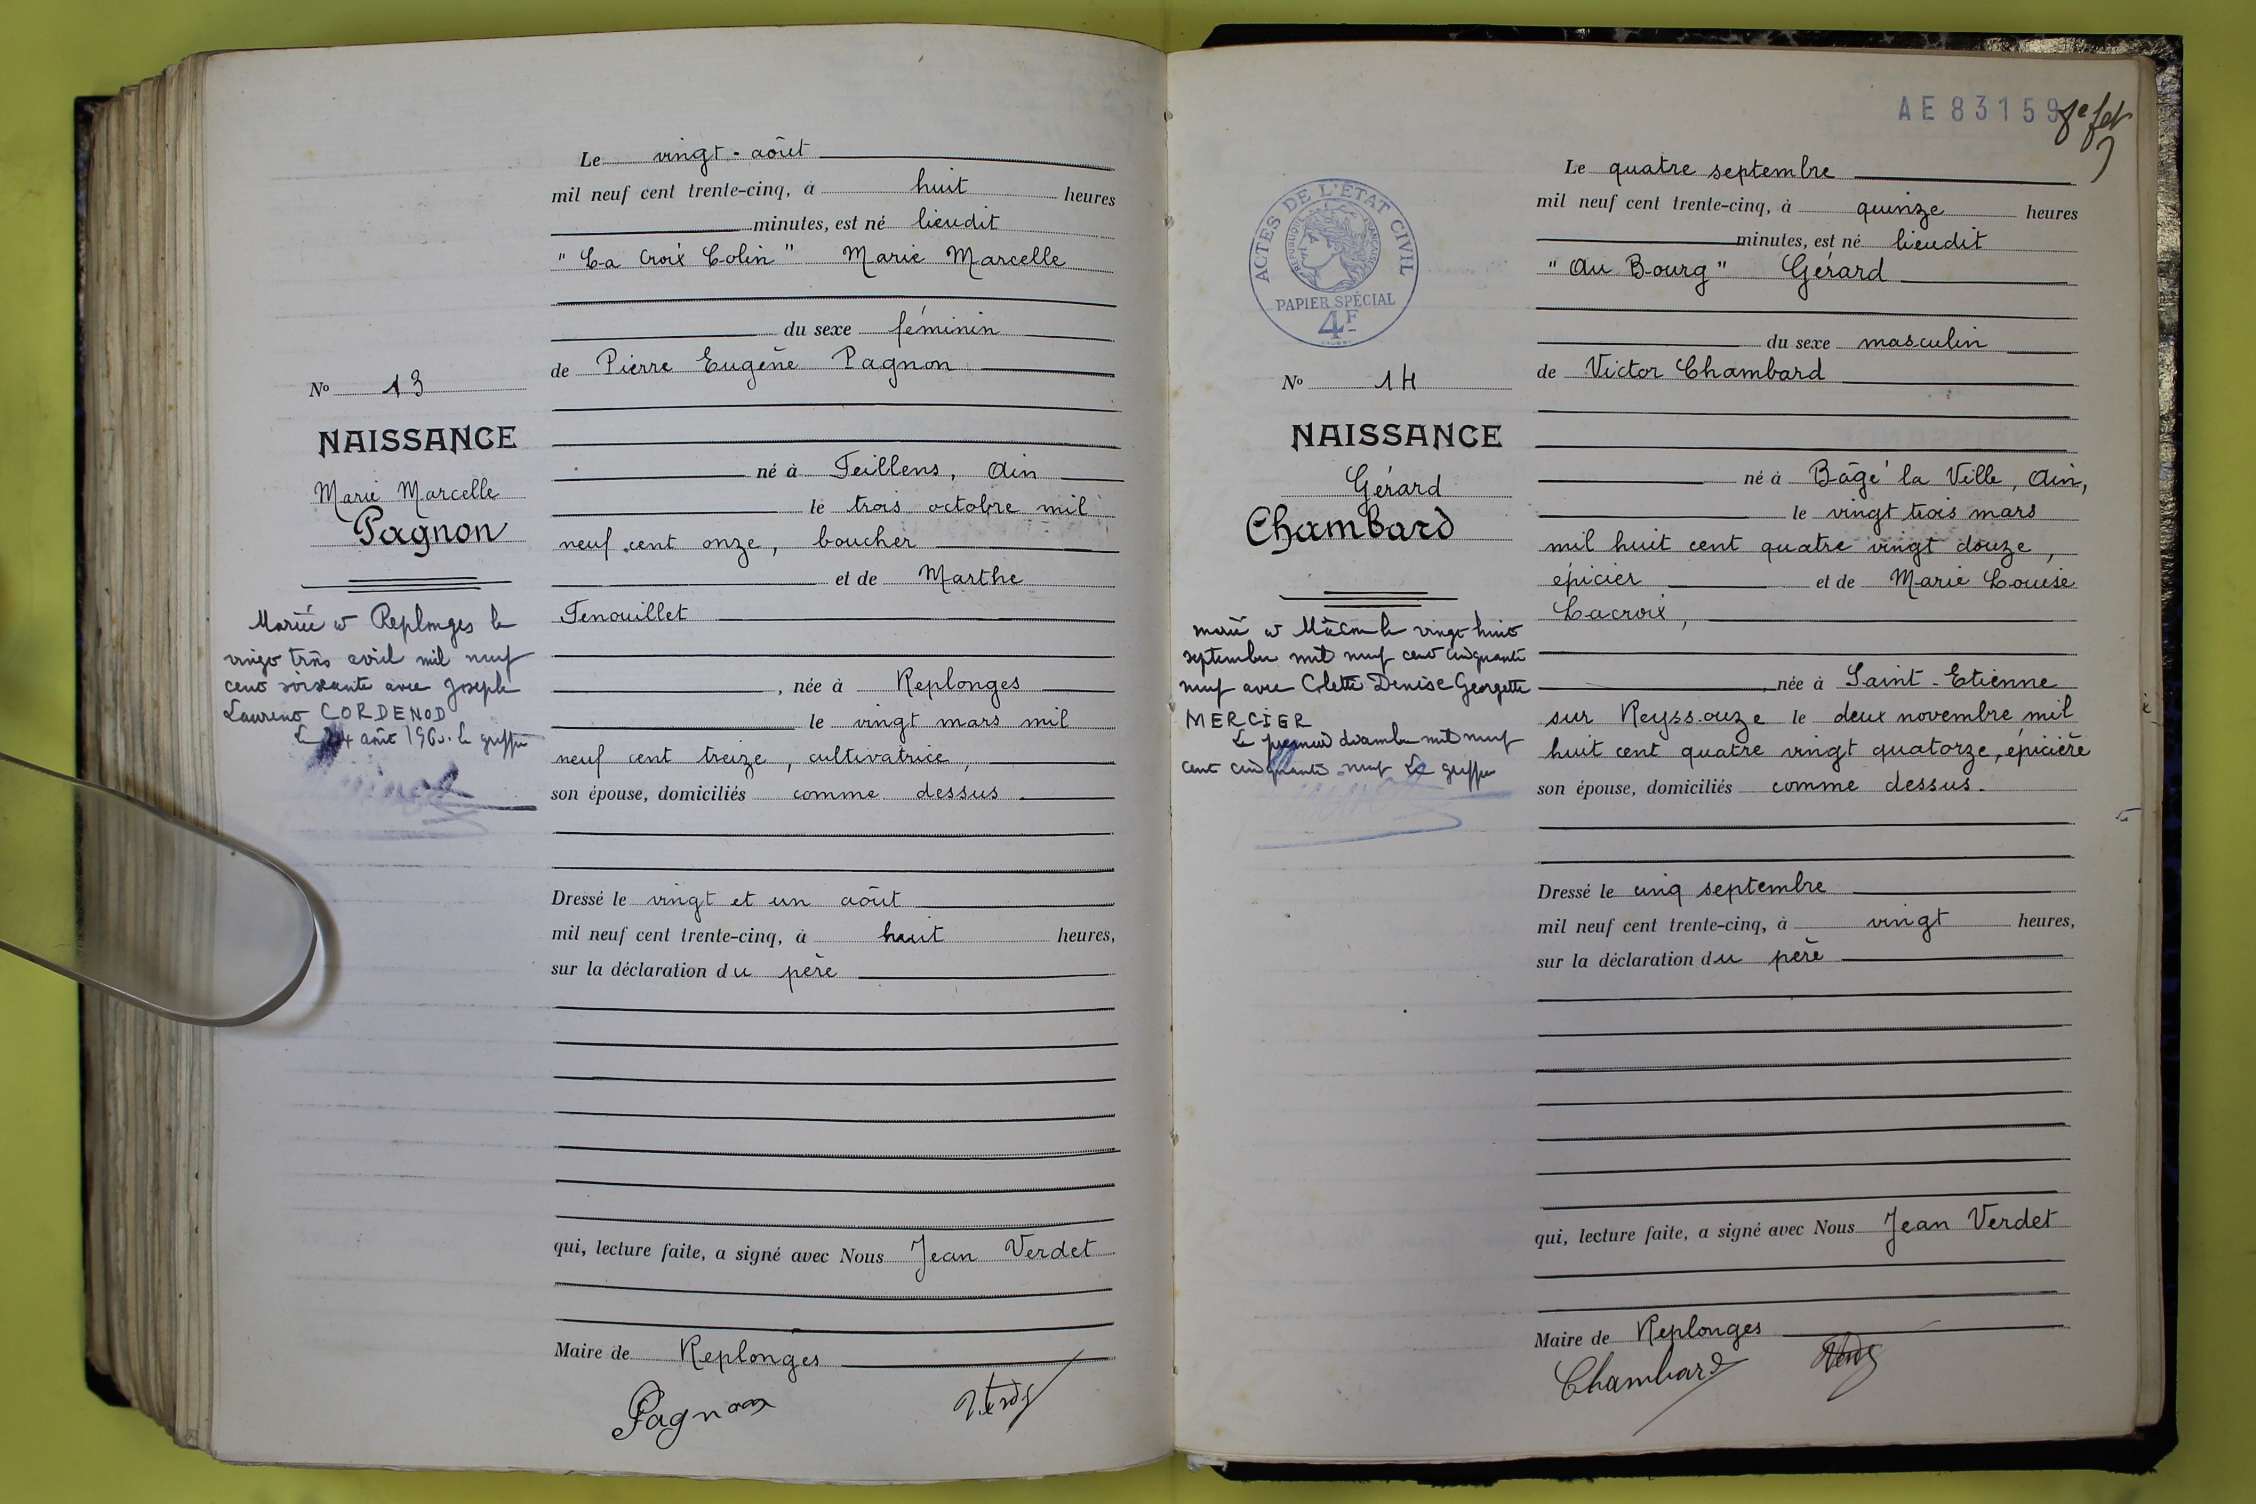 Le vingt-août
mil neuf cent trente-cinq, à huit heures
minutes, est né lieudit
"La Croix Colin" Marie Marcelle
du sexe féminin
de Pierre Eugène Pagnon
né à Feillens, Ain
le trois octobre mil
neuf cent onze, boucher
et de Marthe
Fenouillet
, née à Replonges
le vingt mars mil
neuf cent treize, cultivatrice,
son épouse, domiciliés comme dessus
Dressé le vingt et un août
mil neuf cent trente-cinq, à huit heures,
sur la déclaration du père
qui, lecture faite, a signé avec Nous Jean Verdet
Maire de Replonges
Pagnon
No 13
NAISSANCE
Marie Marcelle
Pagnon
Mariée à Replonges le
vingt trois avril mil neuf
cent soixante avec Joseph
Laurent CORDENOD
Le 24 août 1960. le greffier
AE83159
ACTES DE L'ÉTAT CIVIL
RÉPUBLIQUE FRANÇAISE
PAPIER SPÉCIAL
4F
No 14
NAISSANCE
Gérard
Chambard
marié à Mâcon le vingt huit
septembre mil neuf cent cinquante
neuf avec Colette Denise Georgette
MERCIER
Le premier décembre mil neuf
cent cinquante neuf Le greffier
Le quatre septembre
mil neuf cent trente-cinq, à quinze heures
minutes, est né lieudit
"Au Bourg" Gérard
du sexe masculin
de Victor Chambard
né à Bâgé la Ville, Ain,
le vingt trois mars
mil huit cent quatre vingt douze,
épicier et de Marie Louise
Lacroix,
, née à Saint-Etienne
sur Reyssouze le deux novembre mil
huit cent quatre vingt quatorze, épicière
son épouse, domiciliés comme dessus.
Dressé le cinq septembre
mil neuf cent trente-cinq, à vingt heures,
sur la déclaration du père
qui, lecture faite, a signé avec Nous Jean Verdet
Maire de Replonges
Chambard